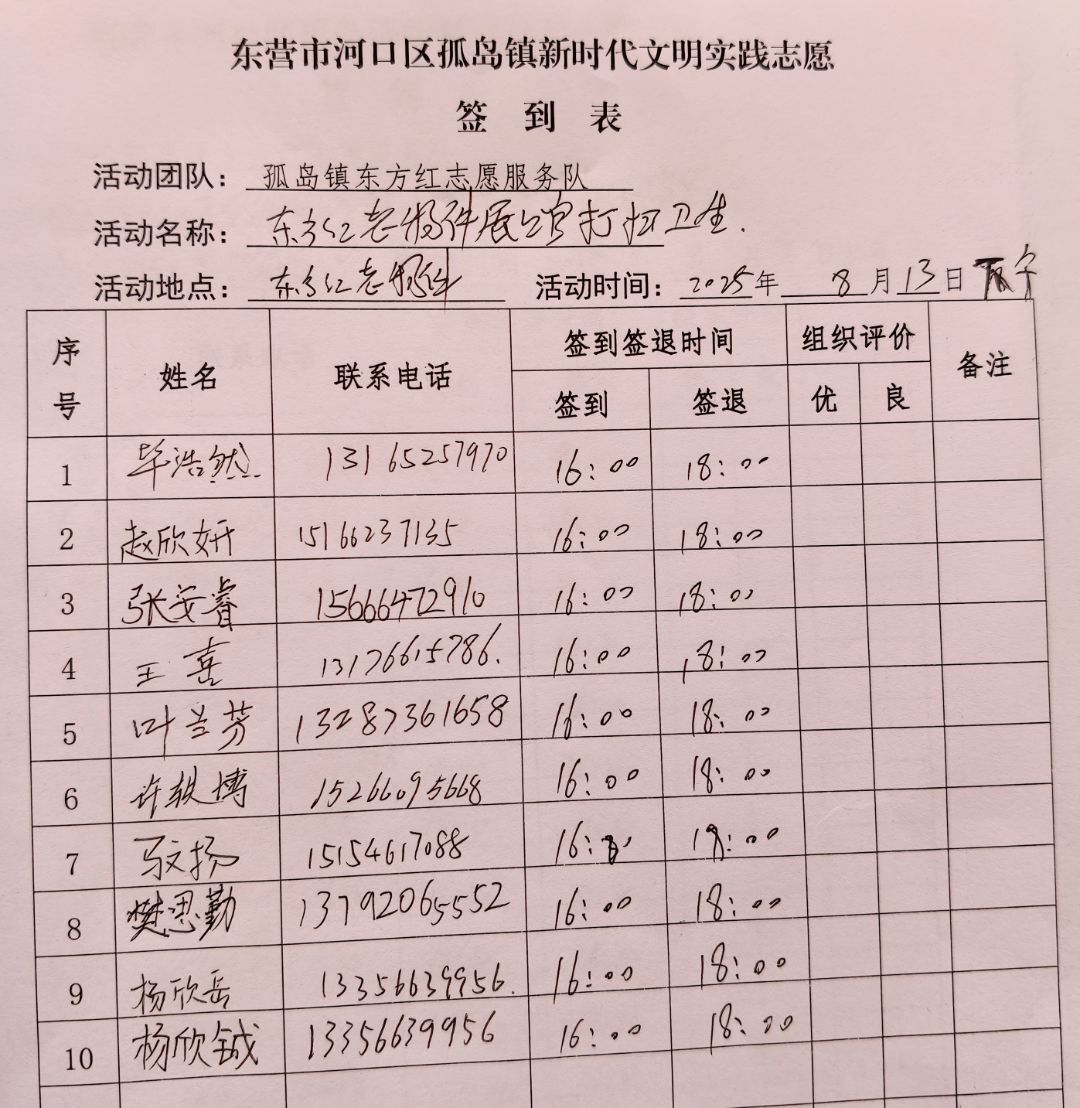 东营市河口区孤岛镇新时代文明实践志愿
签 到 表
活动团队：孤岛镇东方红志愿服务队
活动名称：东方红老物件展馆打扫卫生.
活动地点：东方红老物件 活动时间：2025年 8月13日 下午
序号 姓名 联系电话 签到签退时间 组织评价 备注
签到 签退 优 良
1 毕浩然 13165257970 16：00 18：00
2 赵欣妍 15166237135 16：00 18：00
3 张安睿 15666472910 16：00 18：00
4 王喜 13176615786. 16：00 18：00
5 叶兰芳 13287361658 16：00 18：00
6 许轶博 15266095668 16：00 18：00
7 马文扬 15154617088 16： 18：00
8 樊思勤 13792065552 16：00 18：00
9 杨欣岳 13356639956. 16：00 18：00
10 杨欣铖 13356639956 16：00 18：00